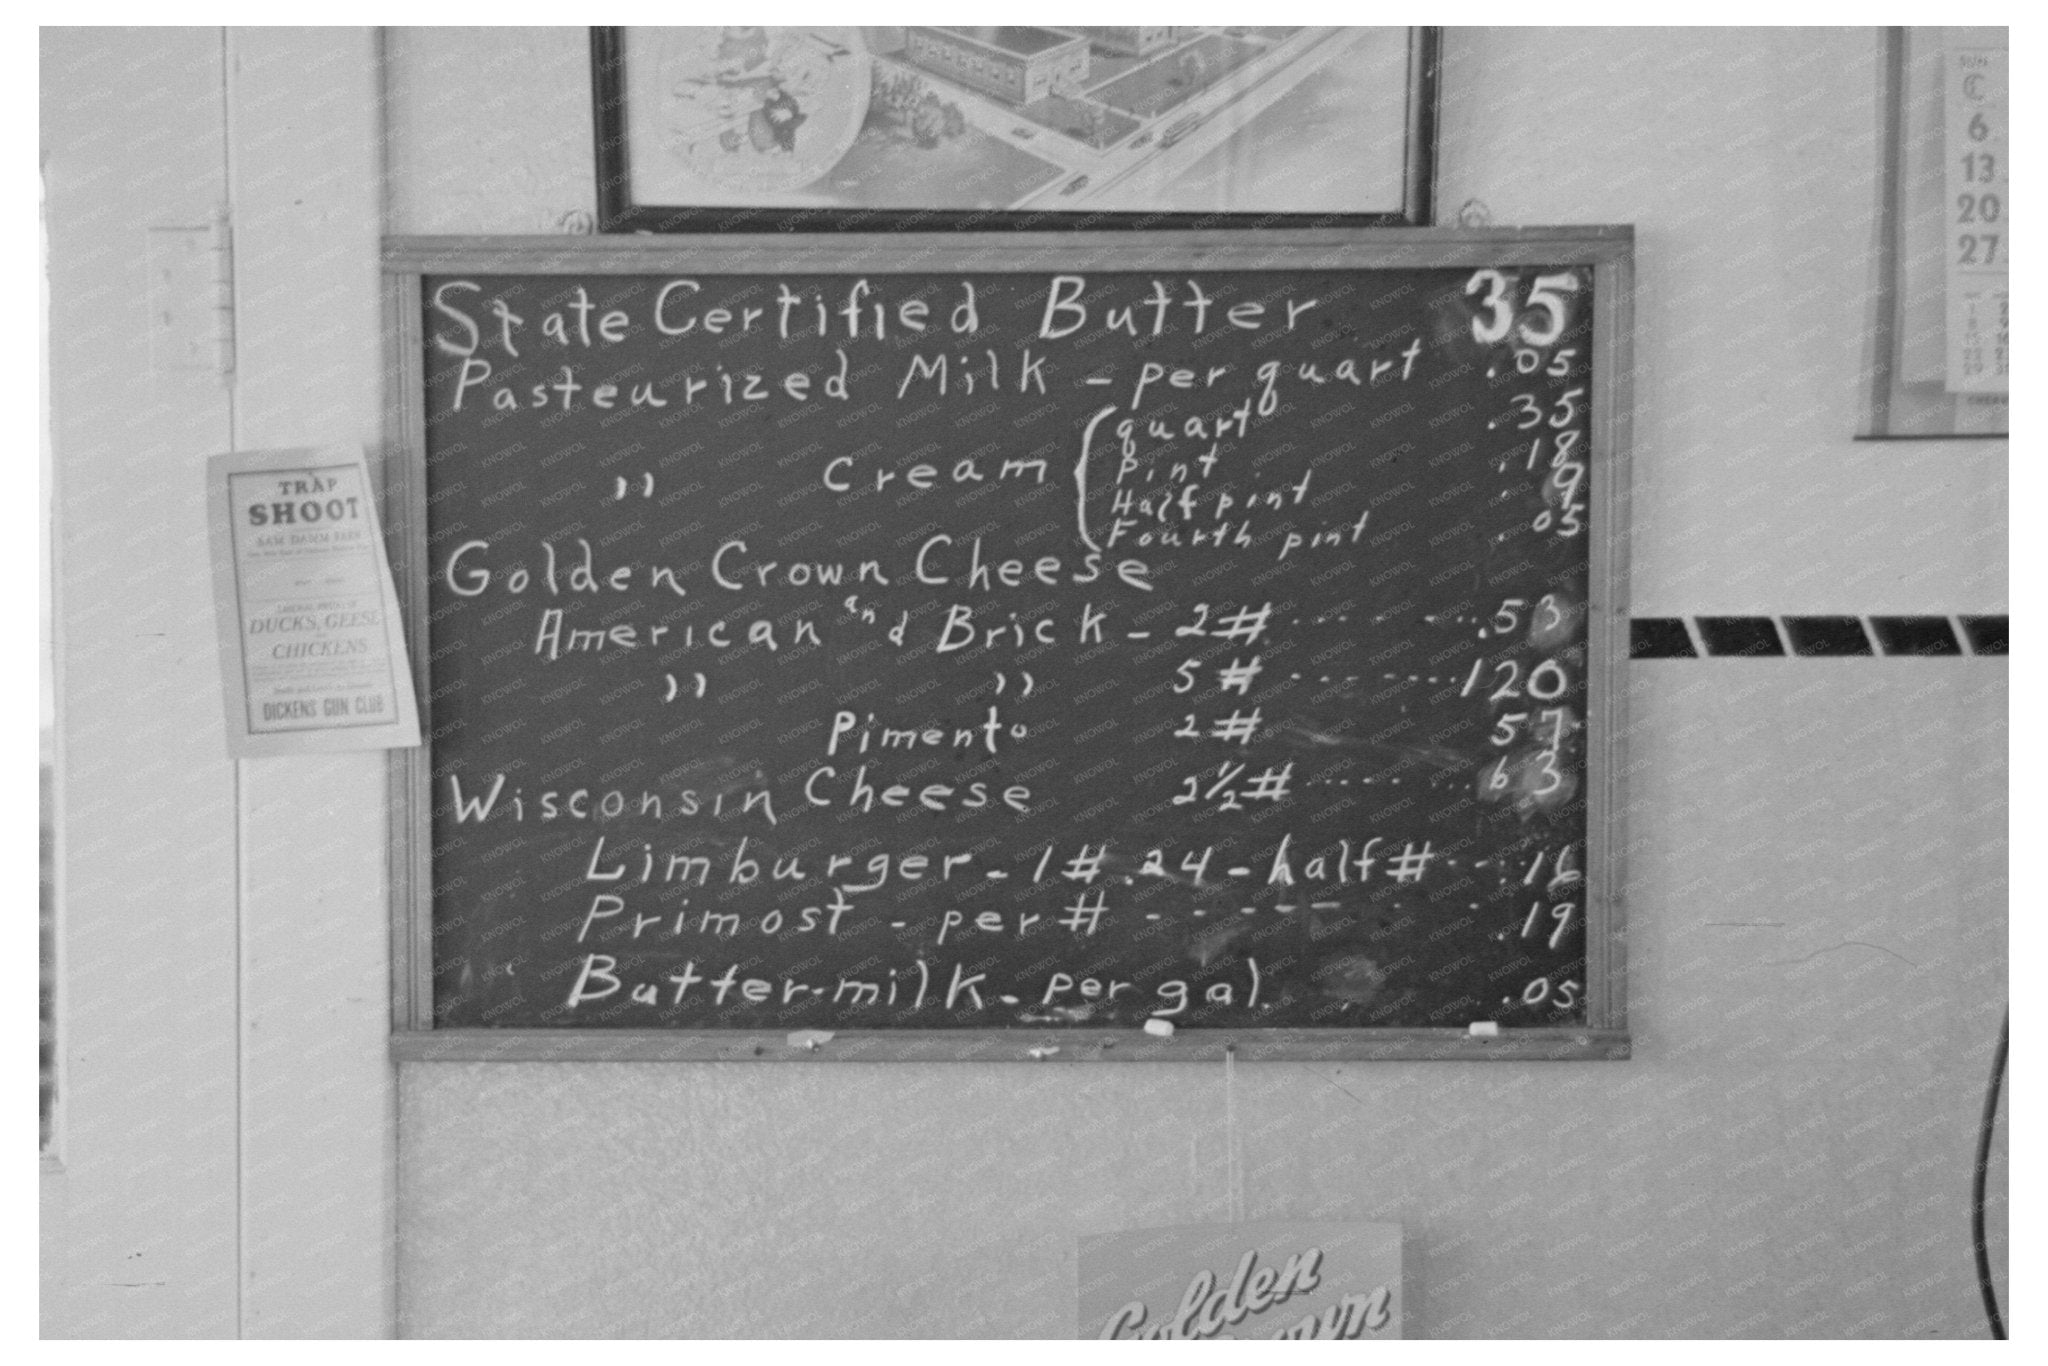 State Certified Butter 35
Pasteurized Milk - per quart .05
quart .35
,, Cream { pint .18
Half pint . 9
Fourth pint . 05
Golden Crown Cheese
American and Brick - 2# ........ .53
,, ,, 5# ........ 120
Pimento 2# 57
Wisconsin Cheese 2½# ........ 63
Limburger - 1# .24 - half# ..... .16
Primost - per # - - - - - . . .19
Butter-milk - per gal. .05
TRAP
SHOOT
SAM DAMM FARM
LIBERAL PRIZES OF
DUCKS, GEESE
CHICKENS
DICKENS GUN CLUB
SUN
6
13
20
27
Golden
Crown
KNOWOL